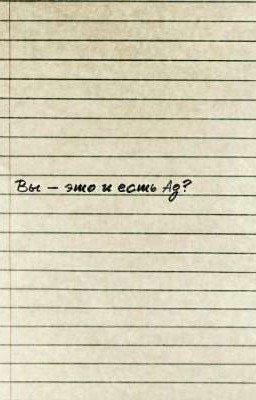 Вы – это и есть Ад?